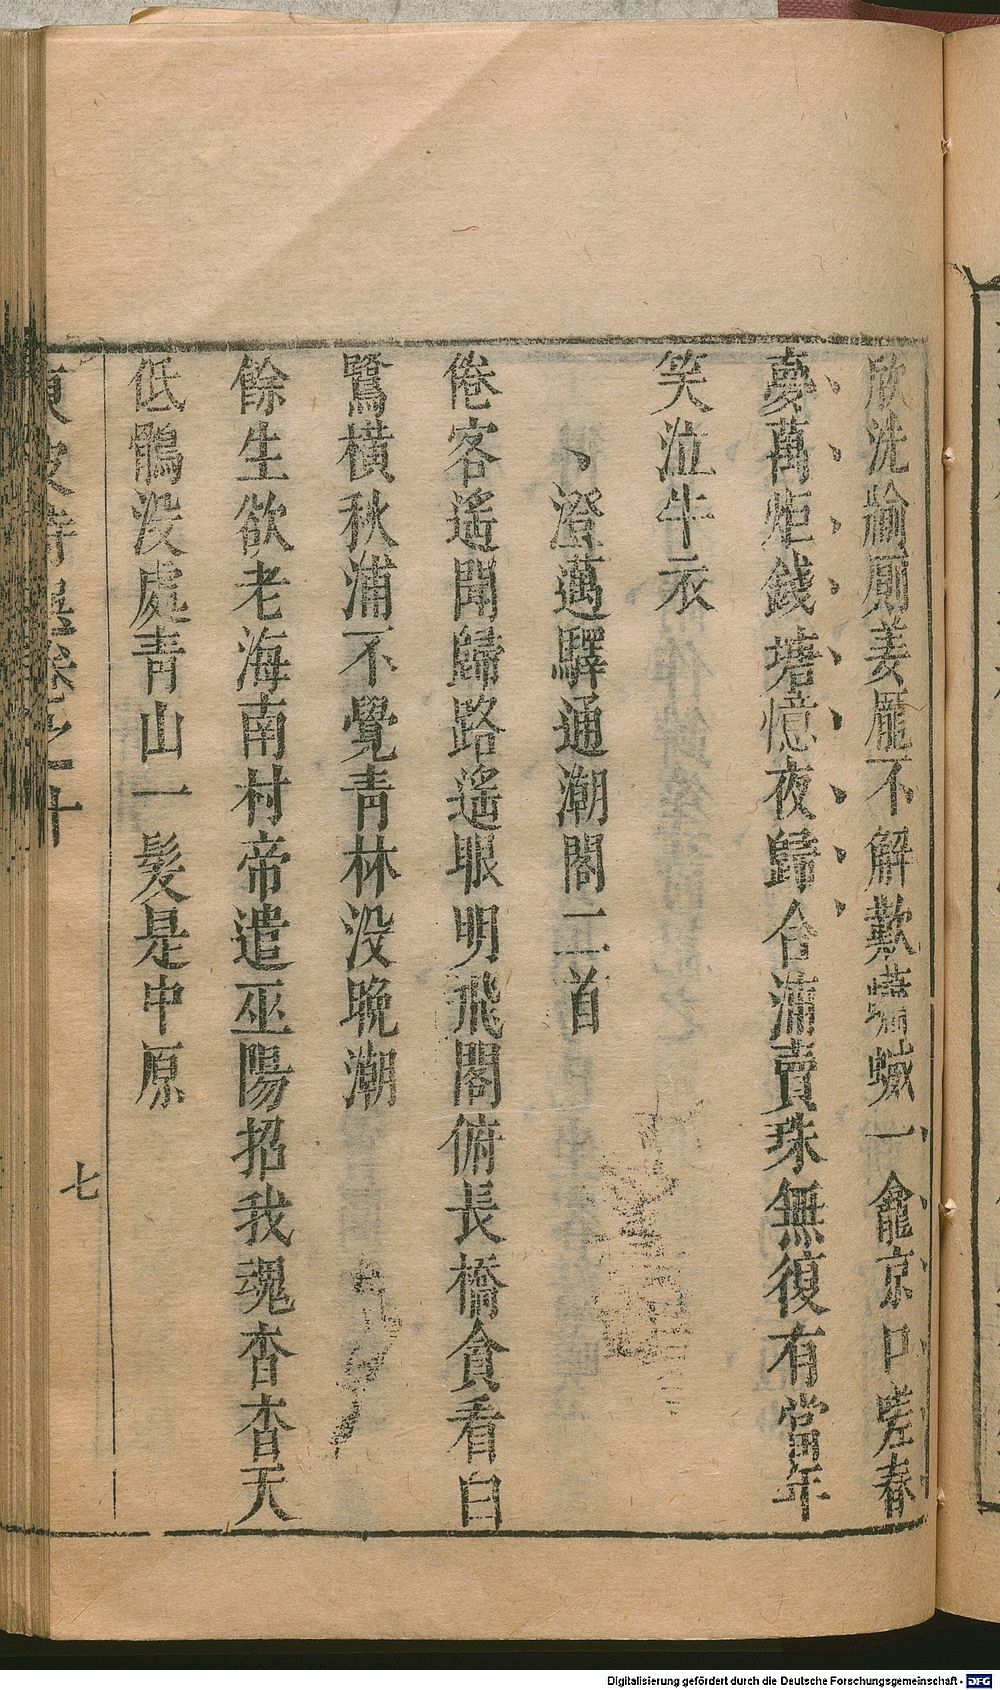 欣洗牏廁姜龐不解歎蠨蛸一龕京口嗟春
夢萬炬錢塘憶夜歸合浦賣珠無復有當年
笑泣牛衣
澄邁驛通潮閣二首
倦客遙聞歸路遙眼明飛閣俯長橋貪看白
鷺橫秋浦不覺青林没晚潮
餘生欲老海南村帝遣巫陽招我魂杳杳天
低鶻没處青山一髮是中原
七
Digitalisierung gefördert durch die Deutsche Forschungsgemeinschaft - DFG